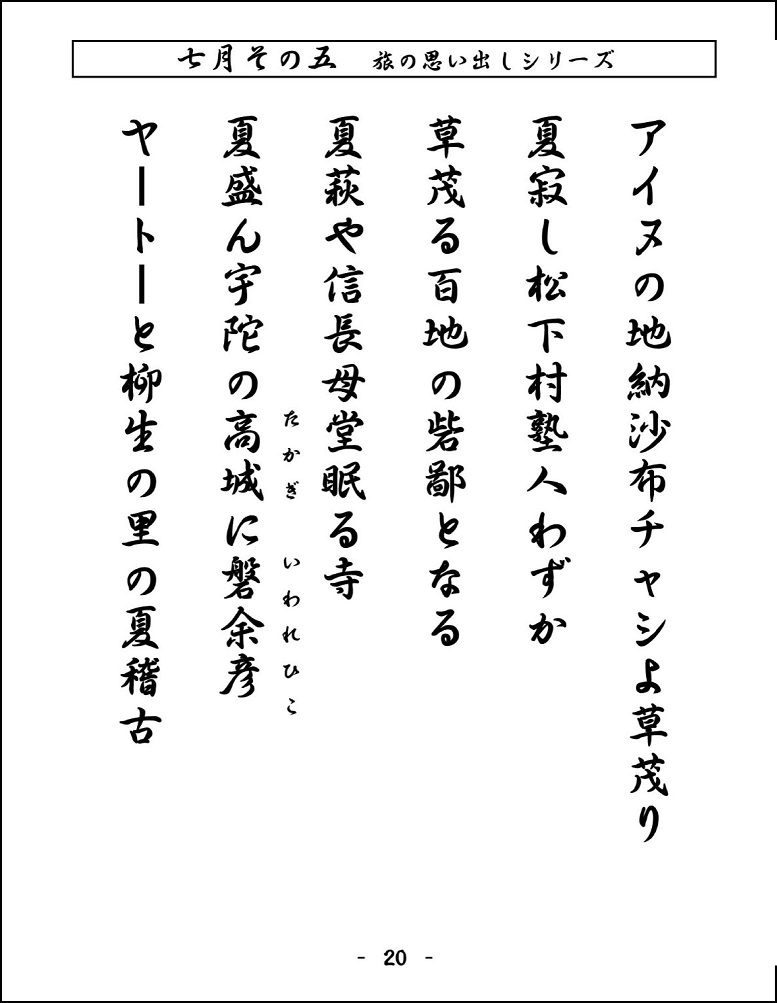 七月その五　旅の思い出しシリーズ
アイヌの地納沙布チャシよ草茂り
夏寂し松下村塾人わずか
草茂る百地の砦鄙となる
夏萩や信長母堂眠る寺
夏盛ん宇陀の高城に磐余彦
たかぎ　いわれひこ
ヤートーと柳生の里の夏稽古
- 20 -